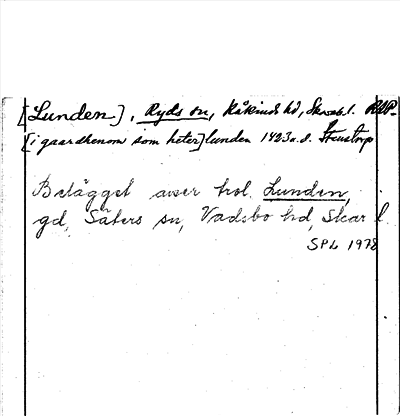 [Lunden], Ryds sn, Kåkinds hd, Skarab. l.
[i gaardhenom som heter] lunden 1423 o.s. Stenstorp
Belägget avser trol. Lunden,
gd, Säters sn, Vadsbo hd, Skar l.
SPL 1978